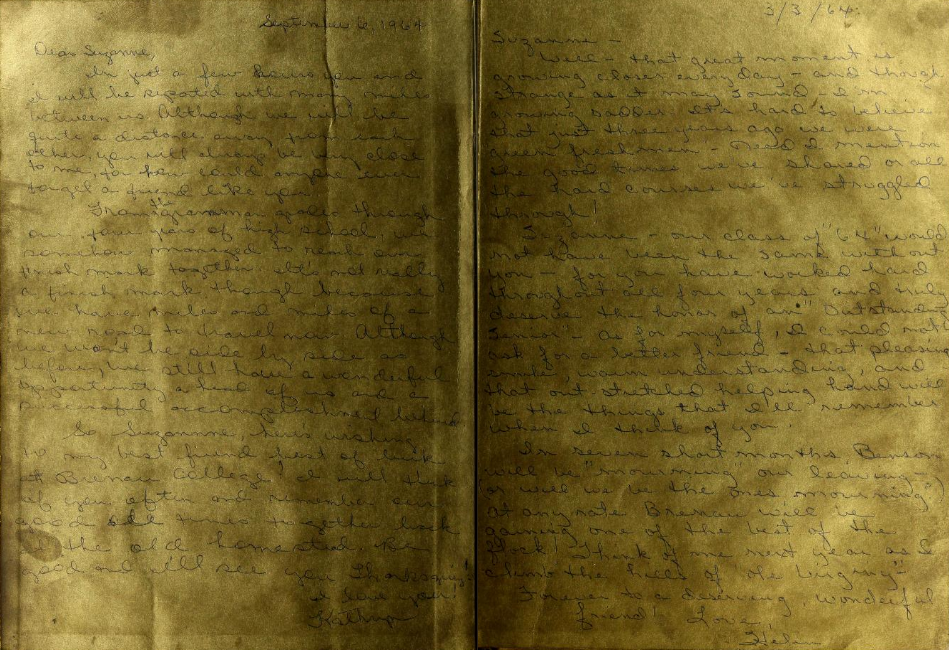 September 6, 1964
Dear Suzanne,
In just a few hours you and
I will be separated with many miles
between us. Although we will be
quite a distance away from each
other, you will always be very close
to me, for how could anyone ever
forget a friend like you.
From the grammar grades through
our four years of high school, we
somehow managed to reach our
finish mark together. It's not really
a finish mark though because
we have mile and miles of a
new road to travel now. Although
we won't be side by side as
before, we still have a wonderful
opportunity ahead of us and a
successful accomplishment behind.
So Suzanne, here's wishing
to my best friend best of luck
at Brenau College. I will think
of you often and remember our
good old times together back
the old homestead. Be
good and I'll see you Thanksgiving!
I love you!
Kathryn
3/3/64
Suzanne -
Well - that great moment is
growing closer everyday - and though
strange as it may sound I'm
growing sadder. It's hard to believe
that just three years ago we were
green freshmen. Need I mention
the good times we've shared or all
the hard courses we've struggled
through!
Suzanne - our class of "64" would
not have been the same without
you - for you have worked hard
throughout all four years and truly
deserve the honor of an "Outstanding
Senior" - as for myself, I could not
ask for a better friend - that pleasing
smile, warm understanding, and
that out stretched helping hand will
be the things that I'll remember
when I think of you.
In seven short months Benson
will be "mourning" our leaving,
or will we be the ones mourning?
At anyrate Brenau will be
gaining one of the best of the
flock! Think of me next year as I
climb the hills of ole Virginy"-
Forever to a deserving, wonderful
friend! Love,
Helen